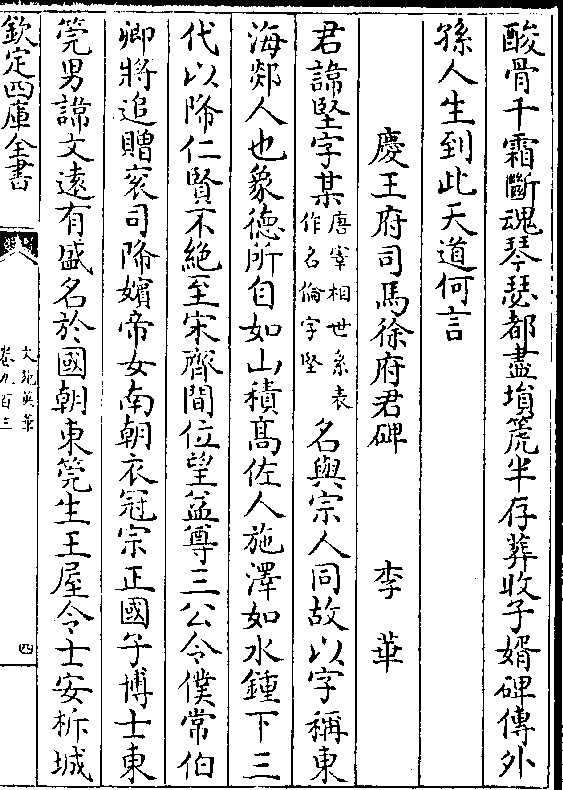 酸骨千霜斷魂琴瑟都盡塤箎半存葬收子婿碑傳外
孫人生到此天道何言
慶王府司馬徐府君碑　李華
君諱堅字某唐宰相世系表作名倫字堅名與宗人同故以字稱東
海郯人也象徳所自如山積髙佐人施澤如水鍾下三
代以降仁賢不絶至宋齊間位望益尊三公令僕常伯
卿將追贈衮司降嬪帝女南朝衣冠宗正國子博士東
莞男諱文逺有盛名於國朝東莞生王屋令士安析城
欽定四庫全書
文苑英華
卷九百三
四